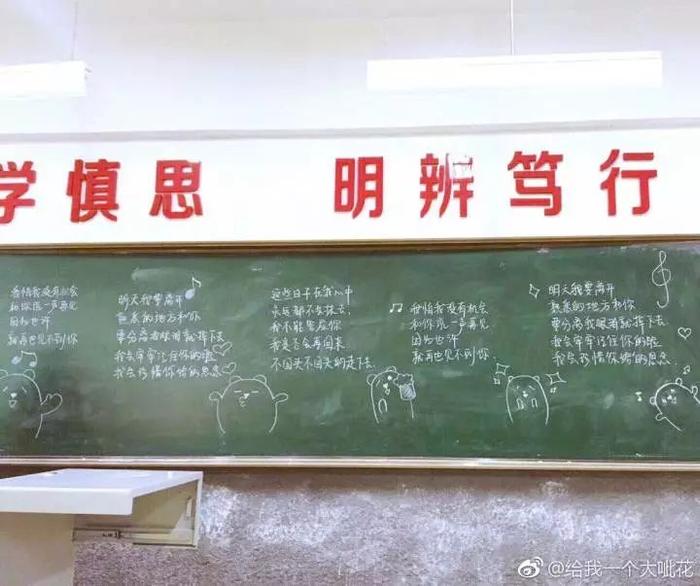 学慎思 明辨笃行
我怕我没有机会
和你说一声再见
因为也许
就再也见不到你
明天我要离开
熟悉的地方和你
要分离我眼泪就掉下去
我会牢牢记住你的脸
我会珍惜你给的思念
这些日子在我心中
永远都不会抹去
我不能答应你
我是否会再回来
不回头不回头的走下去
我怕我没有机会
和你说一声再见
因为也许
就再也见不到你
明天我要离开
熟悉的地方和你
要分离我眼泪就掉下去
我会牢牢记住你的脸
我会珍惜你给的思念
@给我一个大呲花